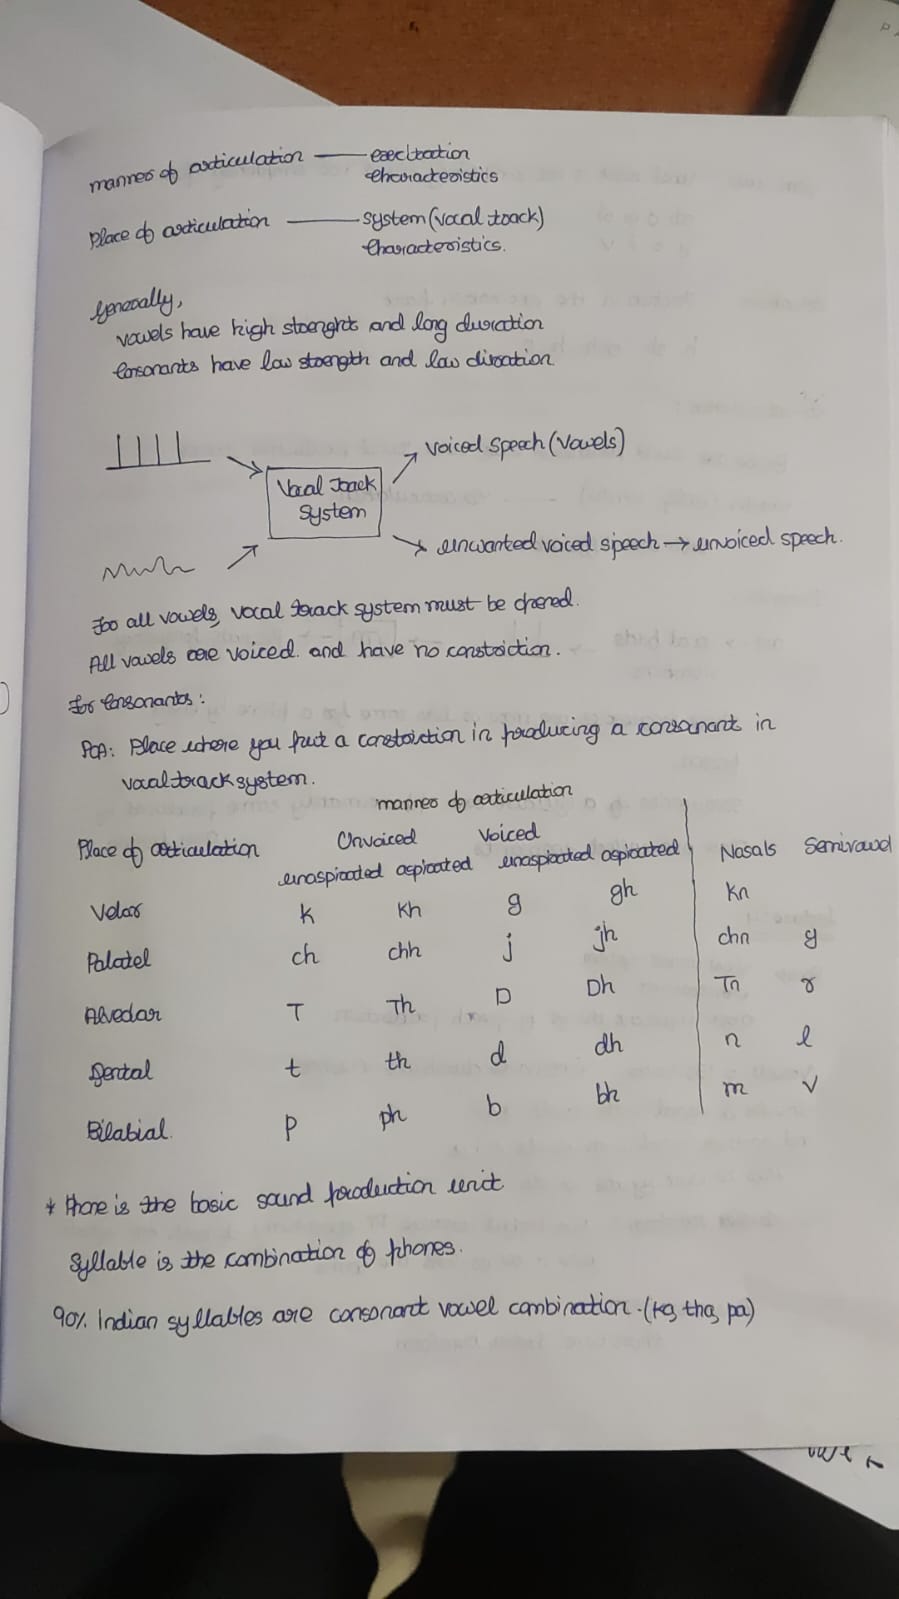 manner of articulation — excitation
characteristics
place of articulation — system (vocal track)
characteristics.
Generally,
vowels have high strenght and long duration
Consonants have low strength and low duration
Vocal Track
System
Voiced Speech (Vowels)
unwanted voiced speech → unvoiced speech.
For all vowels, vocal track system must be opened.
All vowels are voiced. and have no constriction.
for Consonants:
POA: Place where you put a constriction in producing a consonant in
vocal track system.
manner of articulation
Place of articulation Unvoiced Voiced
unaspirated aspirated unaspirated aspirated Nasals Semivowel
Velar k kh g gh kn
Palatel ch chh j jh chn y
Alveolar T Th D Dh Tn r
Dental t th d dh n l
Bilabial. p ph b bh m v
* Phone is the basic sound production unit
Syllable is the combination of phones.
90% Indian syllables are consonant vowel combination. (ka, tha, pa)